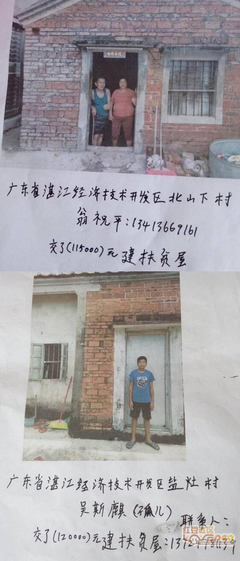 广东省湛江经济技术开发区北山下村
翁祝平:13413669161
交了(115000)元建扶贫屋
广东省湛江经济技术开发区盐灶村
吴新麒(孤儿)
联系人:
交了(120000)元建扶贫屋: